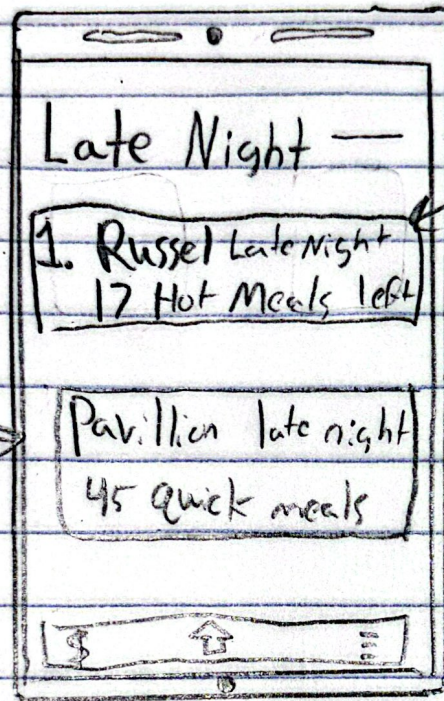 Late Night
1. Russel Late Night
17 Hot Meals left
Pavillion late night
45 quick meals
$